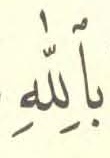 بِٱللّٰهِ